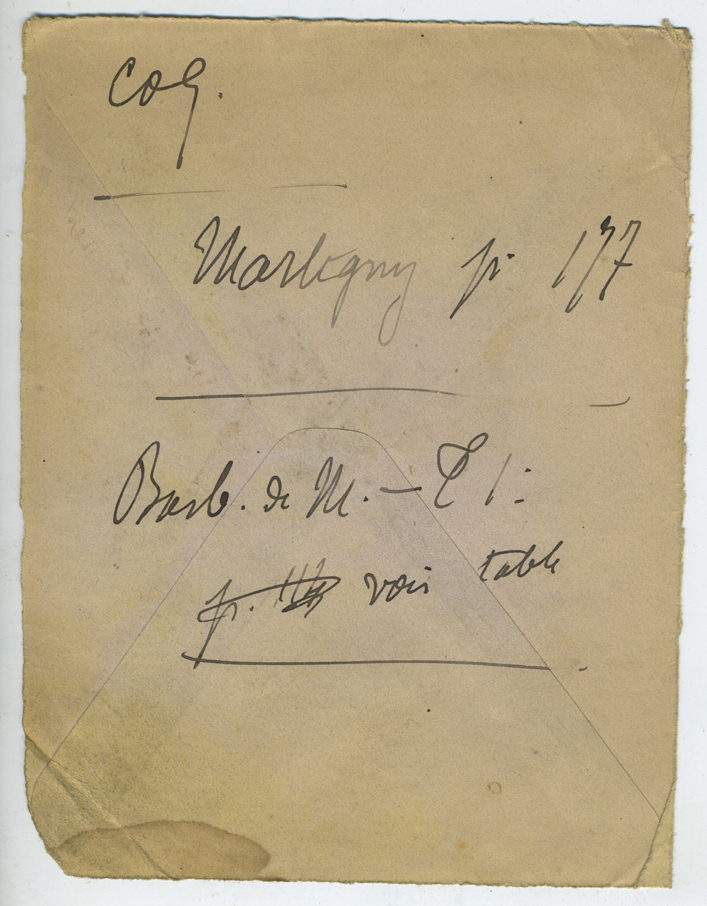 Coq.
Martigny p. 177
Barb. de M. — T 1:
p. voir table